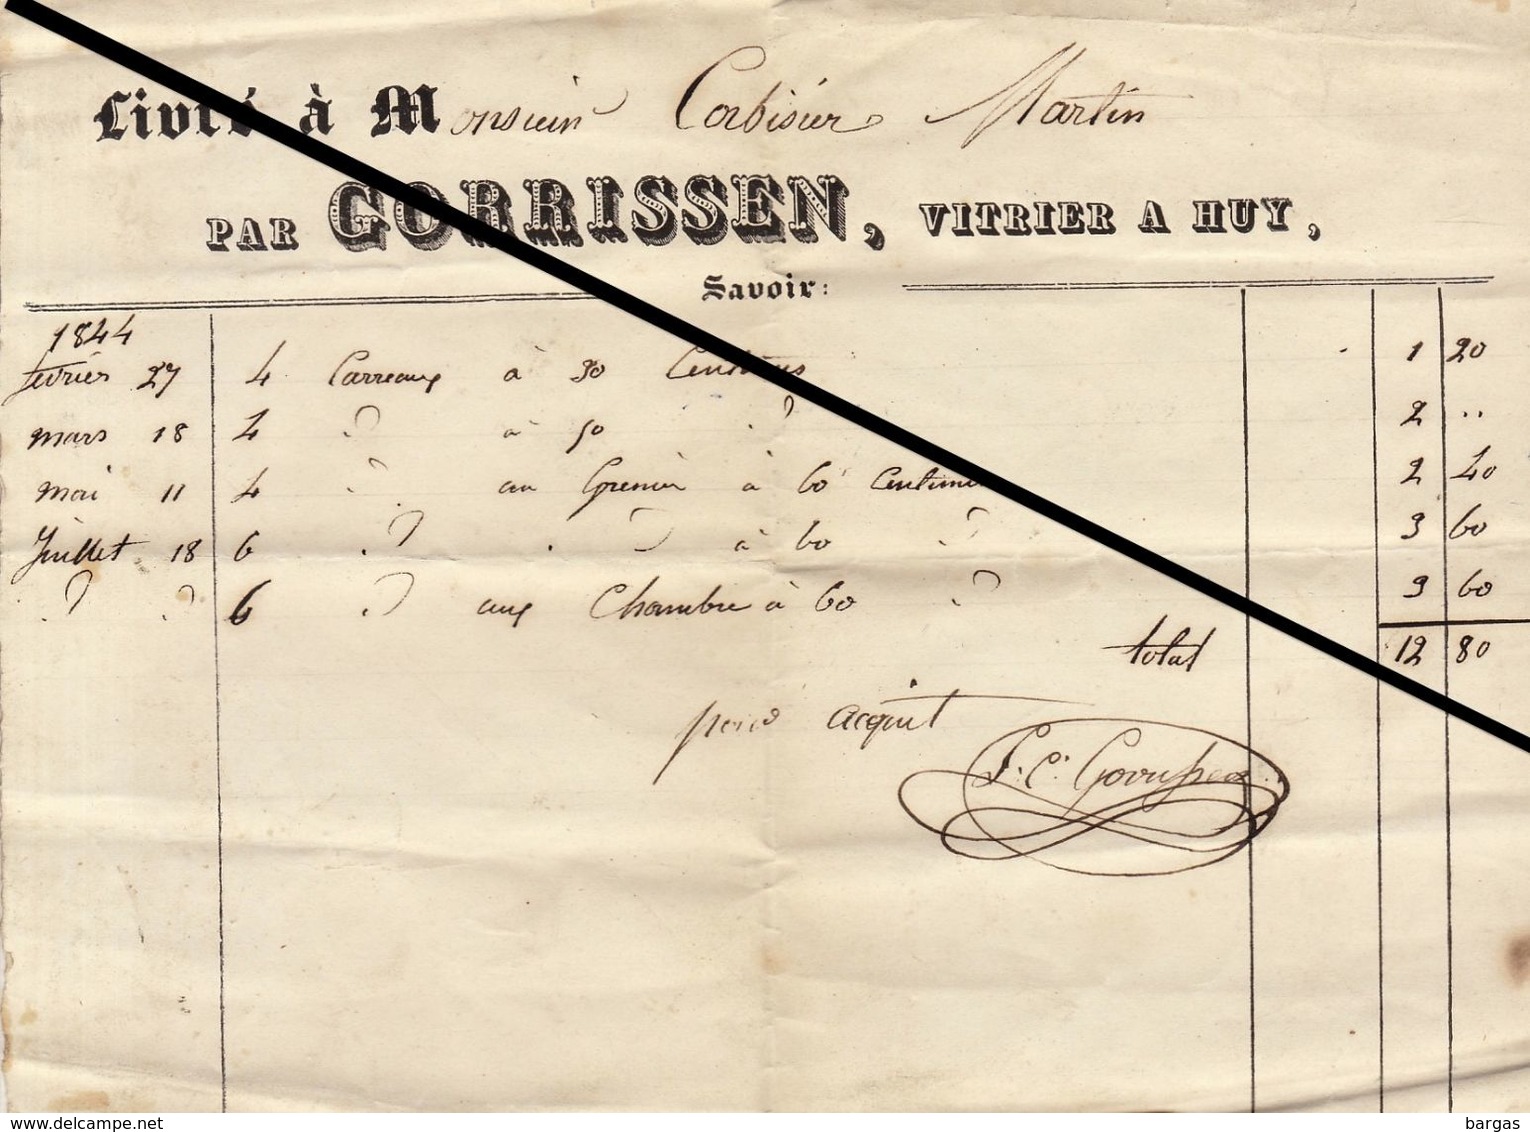 Livré à Monsieur Corbisier Martin
PAR GORRISSEN, VITRIER A HUY,
Savoir:
1844
fevrier 27 4 Carreaux à 30 Centimes 1 20
mars 18 4 " à 50 " 2 ..
mai 11 4 " au Grenier à 60 Centimes 2 40
Juillet 18 6 " . " à 60 " 3 60
" " 6 " aux Chambre à 60 " 3 60
total 12 80
pour acquit
Gorrissen
delcampe.net
bargas